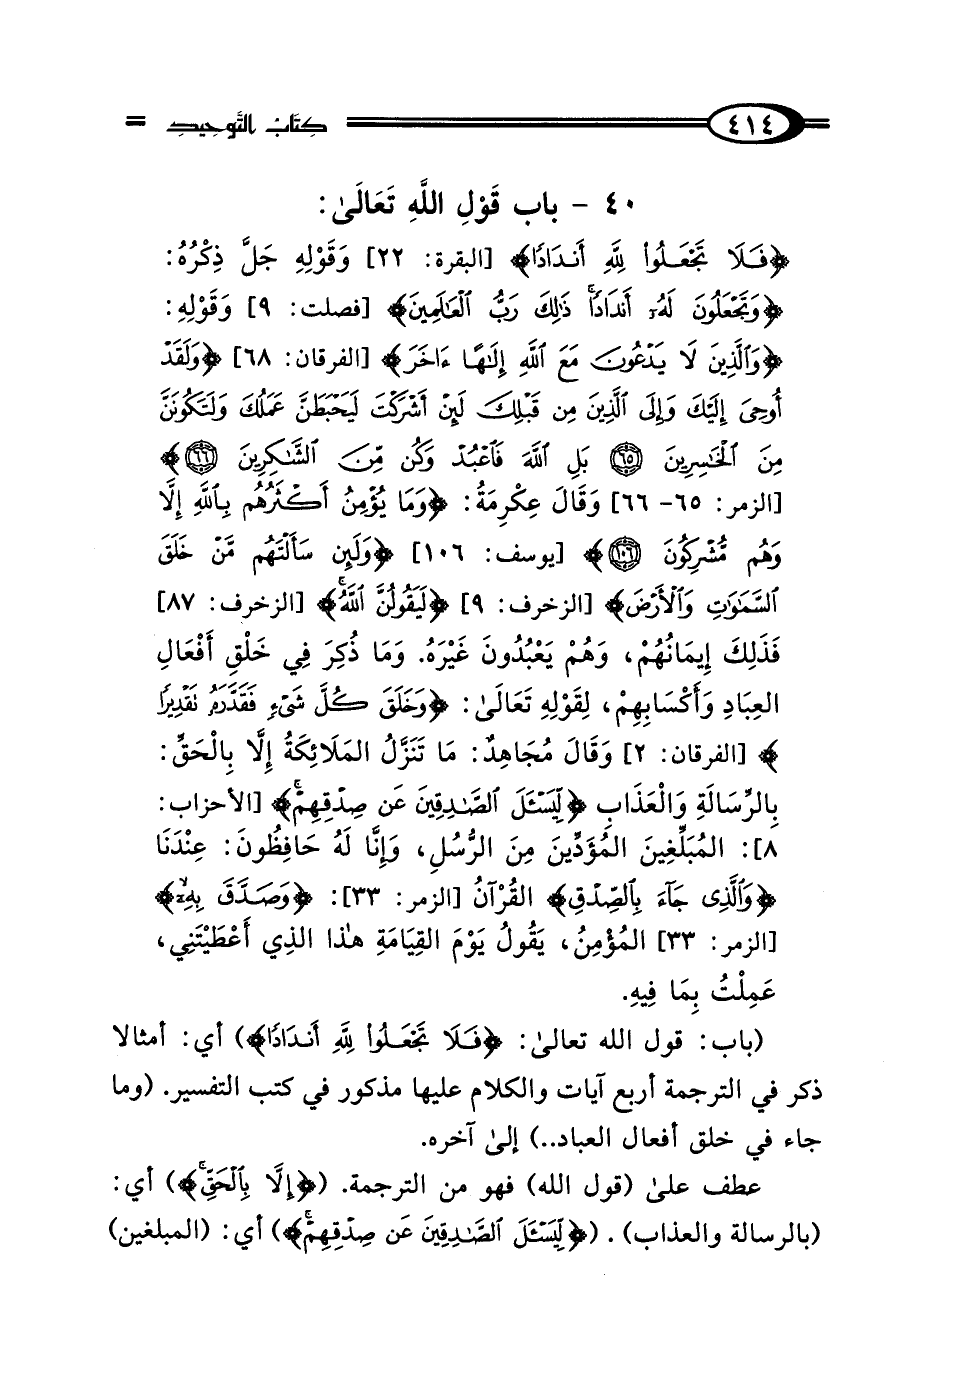 ٤١٤ كتاب التوحيد
٤٠ - باب قَوْلِ اللَّهِ تَعَالَىٰ:
﴿فَلَا تَجْعَلُوا۟ لِلَّهِ أَندَادًا﴾ [البقرة: ٢٢] وَقَوْلِهِ جَلَّ ذِكْرُهُ:
﴿وَتَجْعَلُونَ لَهُۥٓ أَندَادًا ۚ ذَٰلِكَ رَبُّ ٱلْعَٰلَمِينَ﴾ [فصلت: ٩] وَقَوْلِهِ:
﴿وَٱلَّذِينَ لَا يَدْعُونَ مَعَ ٱللَّهِ إِلَٰهًا ءَاخَرَ﴾ [الفرقان: ٦٨] ﴿وَلَقَدْ
أُوحِىَ إِلَيْكَ وَإِلَى ٱلَّذِينَ مِن قَبْلِكَ لَئِنْ أَشْرَكْتَ لَيَحْبَطَنَّ عَمَلُكَ وَلَتَكُونَنَّ
مِنَ ٱلْخَٰسِرِينَ ٦٥ بَلِ ٱللَّهَ فَٱعْبُدْ وَكُن مِّنَ ٱلشَّٰكِرِينَ ٦٦﴾
[الزمر: ٦٥- ٦٦] وَقَالَ عِكْرِمَةُ: ﴿وَمَا يُؤْمِنُ أَكْثَرُهُم بِٱللَّهِ إِلَّا
وَهُم مُّشْرِكُونَ ١٠٦﴾ [يوسف: ١٠٦] ﴿وَلَئِن سَأَلْتَهُم مَّنْ خَلَقَ
ٱلسَّمَٰوَٰتِ وَٱلْأَرْضَ﴾ [الزخرف: ٩] ﴿لَيَقُولُنَّ ٱللَّهُ ۚ﴾ [الزخرف: ٨٧]
فَذَلِكَ إِيمَانُهُمْ، وَهُمْ يَعْبُدُونَ غَيْرَهُ. وَمَا ذُكِرَ فِي خَلْقِ أَفْعَالِ
العِبَادِ وَأَكْسَابِهِمْ، لِقَوْلِهِ تَعَالَىٰ: ﴿وَخَلَقَ كُلَّ شَىْءٍ فَقَدَّرَهُۥ تَقْدِيرًا
﴾ [الفرقان: ٢] وَقَالَ مُجَاهِدٌ: مَا تَنَزَّلُ المَلَائِكَةُ إِلَّا بِالْحَقِّ:
بِالرِّسَالَةِ وَالْعَذَابِ ﴿لِّيَسْـَٔلَ ٱلصَّٰدِقِينَ عَن صِدْقِهِمْ ۚ﴾ [الأحزاب:
٨]: المُبَلِّغِينَ المُؤَدِّينَ مِنَ الرُّسُلِ، وَإِنَّا لَهُ حَافِظُونَ: عِنْدَنَا
﴿وَٱلَّذِى جَآءَ بِٱلصِّدْقِ﴾ القُرْآنُ [الزمر: ٣٣]: ﴿وَصَدَّقَ بِهِۦٓ ۙ﴾
[الزمر: ٣٣] المُؤْمِنُ، يَقُولُ يَوْمَ القِيَامَةِ هٰذا الذِي أَعْطَيْتَنِي،
عَمِلْتُ بِمَا فِيهِ.
(باب: قول الله تعالىٰ: ﴿فَلَا تَجْعَلُوا۟ لِلَّهِ أَندَادًا﴾) أي: أمثالا
ذكر في الترجمة أربع آيات والكلام عليها مذكور في كتب التفسير. (وما
جاء في خلق أفعال العباد..) إلىٰ آخره.
عطف علىٰ (قول الله) فهو من الترجمة. (﴿إِلَّا بِٱلْحَقِّ ۚ﴾) أي:
(بالرسالة والعذاب). (﴿لِّيَسْـَٔلَ ٱلصَّٰدِقِينَ عَن صِدْقِهِمْ ۚ﴾) أي: (المبلغين)